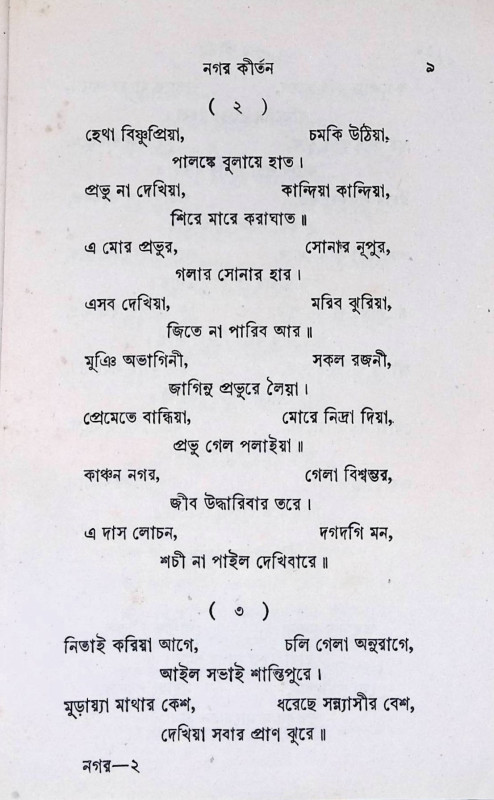 নগর কীর্তন ৯
( ২ )
হেথা বিষ্ণুপ্রিয়া, চমকি উঠিয়া,
পালঙ্কে বুলায়ে হাত ।
প্রভু না দেখিয়া, কান্দিয়া কান্দিয়া,
শিরে মারে করাঘাত ॥
এ মোর প্রভুর, সোনার নূপুর,
গলার সোনার হার ।
এসব দেখিয়া, মরিব ঝুরিয়া,
জিতে না পারিব আর ॥
মুঞি অভাগিনী, সকল রজনী,
জাগিনু প্রভুরে লৈয়া ।
প্রেমেতে বান্ধিয়া, মোরে নিদ্রা দিয়া,
প্রভু গেল পলাইয়া ॥
কাঞ্চন নগর, গেলা বিশ্বম্ভর,
জীব উদ্ধারিবার তরে ।
এ দাস লোচন, দগদগি মন,
শচী না পাইল দেখিবারে ॥
( ৩ )
নিতাই করিয়া আগে, চলি গেলা অনুরাগে,
আইল সভাই শান্তিপুরে ।
মুড়ায়্যা মাথার কেশ, ধরেছে সন্ন্যাসীর বেশ,
দেখিয়া সবার প্রাণ ঝুরে ॥
নগর—২